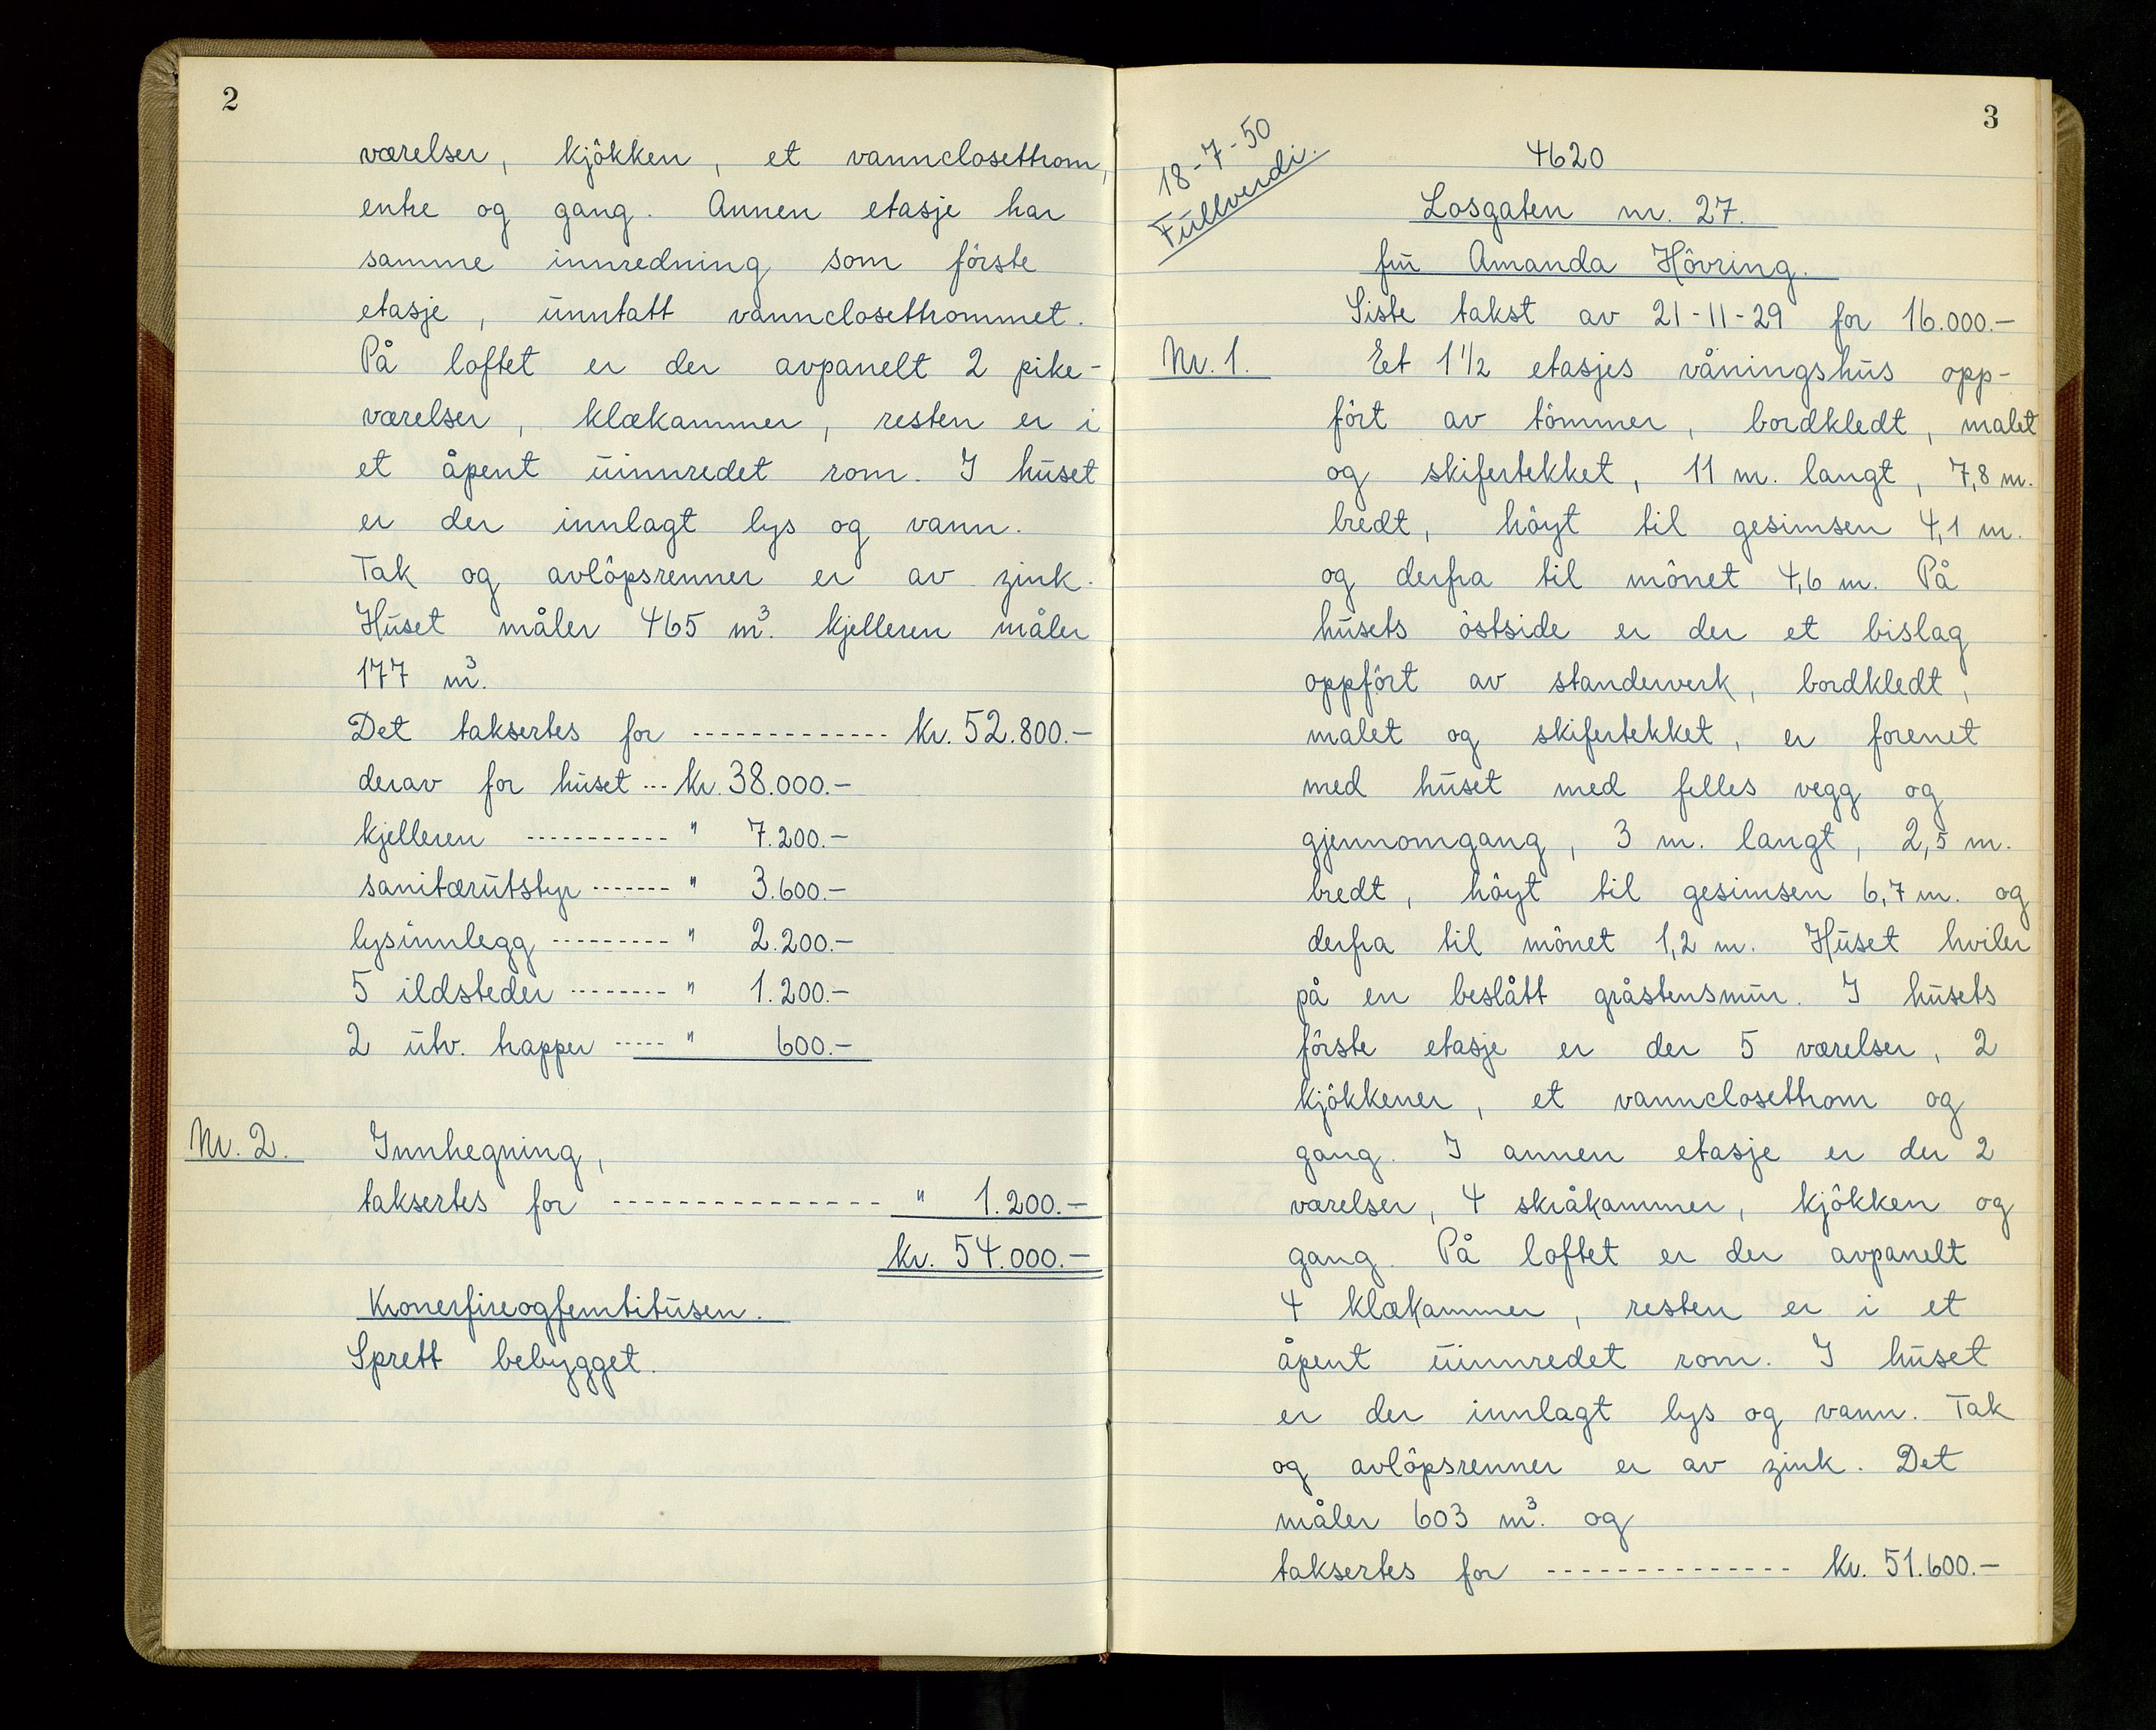 2
værelser, kjökken, et vannclosettrom,
entre og gang. Annen etasje har
samme innredning som förste
etasje, unntatt vannclosettrommet.
På loftet er der avpanelt 2 pike-
værelser, klækammer, resten er i
et åpent uinnredet rom. I huset
er der innlagt lys og vann.
Tak og avlöpsrenner er av zink.
Huset måler 465 m³. kjelleren måler
177 m³.
Det taksertes for ------------- kr. 52.800.-
derav for huset ... kr. 38.000.-
kjelleren ----------- " 7.200.-
sanitærutstyr ------- " 3.600.-
lysinnlegg --------- " 2.200.-
5 ildsteder -------- " 1.200.-
2 utv. trapper ----- " 600.-
Nr. 2. Innhegning,
taksertes for --------------- " 1.200.-
kr. 54.000.-
Kronerfireogfemtitusen.
Spredt bebygget.
3
18-7-50
Fullverdi.
4620
Losgaten nr. 27.
fru Amanda Hövring.
Siste takst av 21-11-29 for 16.000.-
Nr. 1. Et 1 1/2 etasjes våningshus opp-
fört av tömmer, bordkledt, malet
og skifertekket, 11 m. langt, 7,8 m.
bredt, höyt til gesimsen 4,1 m.
og derfra til mönet 4,6 m. På
husets östside er der et bislag
oppfört av standerverk, bordkledt,
malet og skifertekket, er forenet
med huset med felles vegg og
gjennomgang, 3 m. langt, 2,5 m.
bredt, höyt til gesimsen 6,7 m. og
derfra til mönet 1,2 m. Huset hviler
på en beslått gråstensmur. I husets
förste etasje er der 5 værelser, 2
kjökkener, et vannclosettrom og
gang. I annen etasje er der 2
værelser, 4 skråkammer, kjökken og
gang. På loftet er der avpanelt
4 klækammer, resten er i et
åpent uinnredet rom. I huset
er der innlagt lys og vann. Tak
og avlöpsrenner er av zink. Det
måler 603 m³. og
taksertes for -------------- kr. 51.600.-